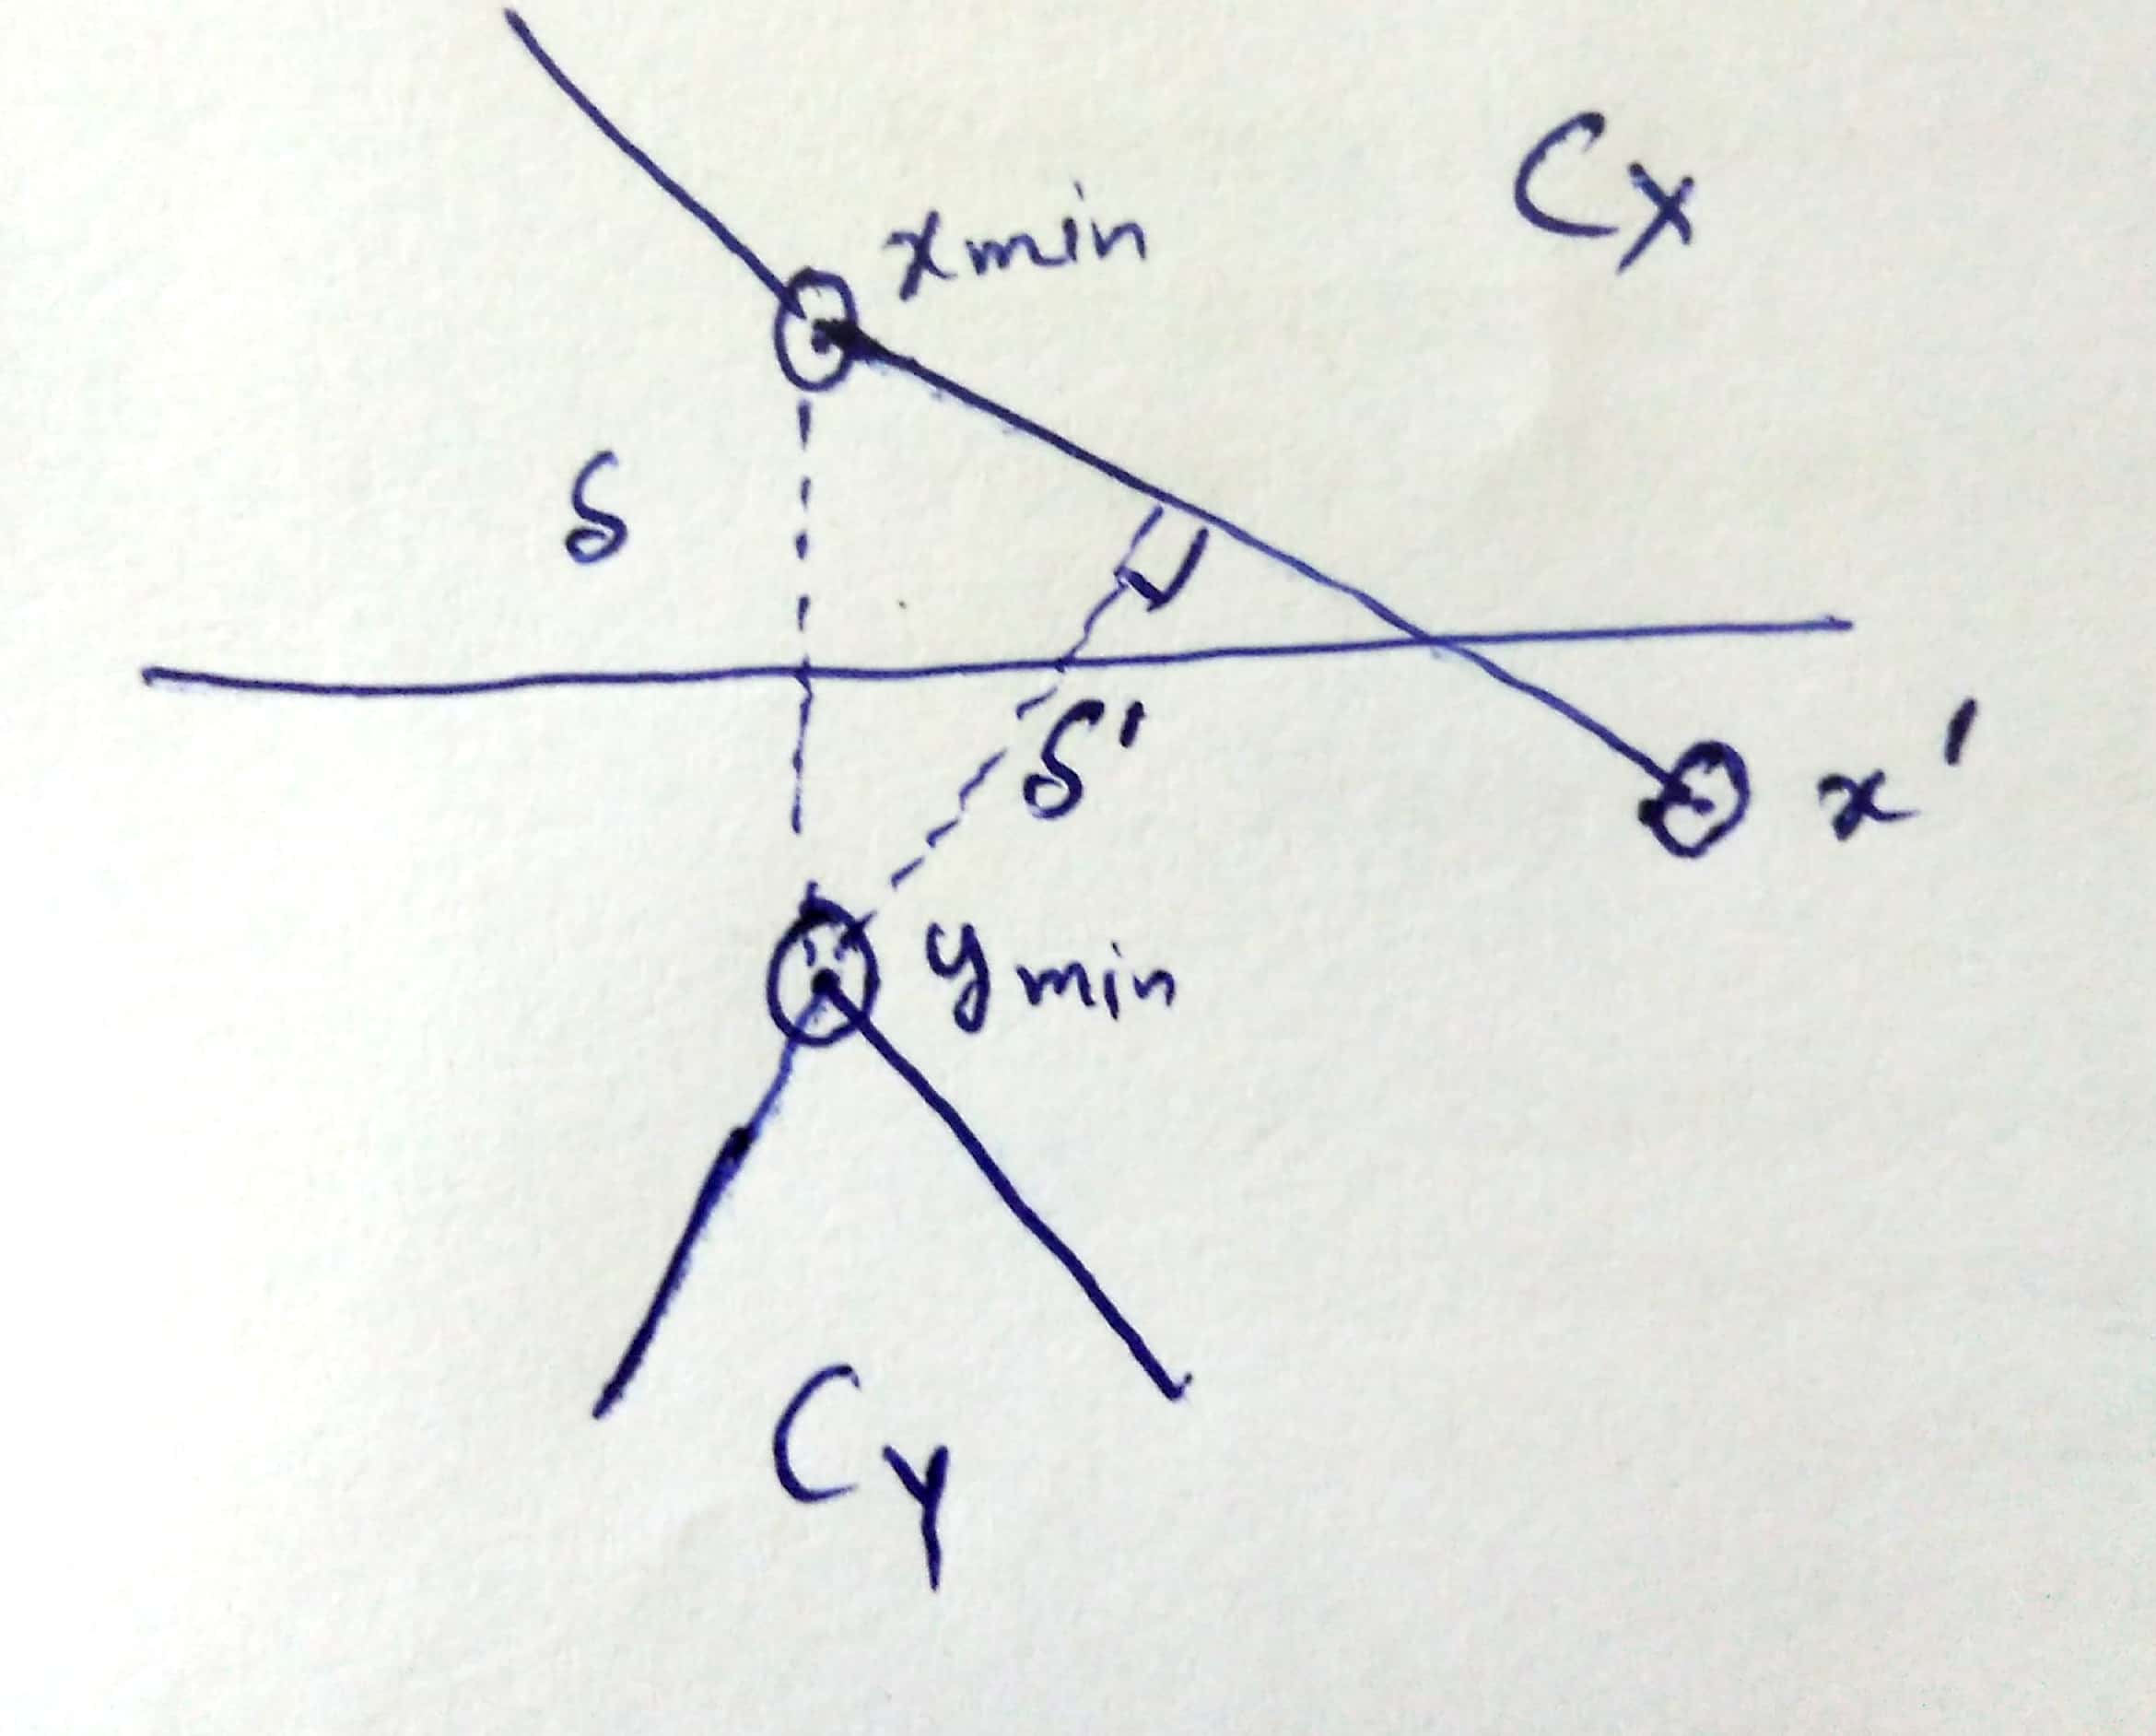 Cx
xmin
δ
δ'
x'
ymin
Cy